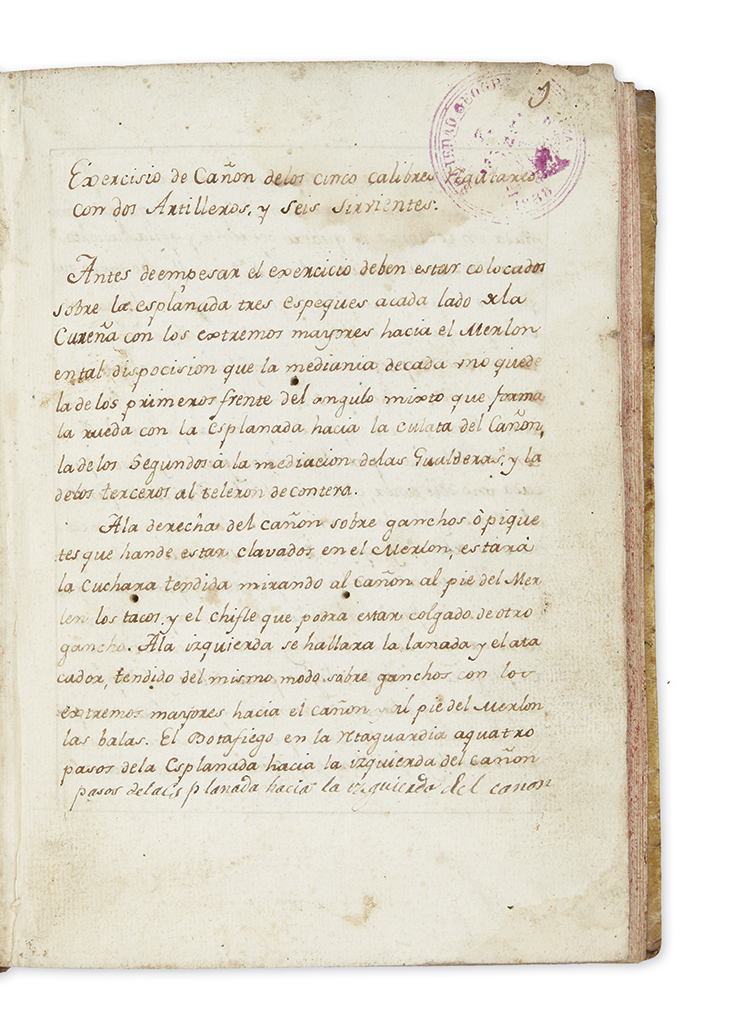 9
SOCIEDAD GEOGR
1888
Exercisio de Cañon delos cinco calibres regulares
con dos Artilleros, y seis sirvientes.
Antes deempesar el exercicio deben estar colocados
sobre la esplanada tres espeques acada lado dela
Cureña con los extremos mayores hacia el Merlon
ental dispocision que la mediania decada uno quede
la de los primeros frente del angulo mixto que forma
la rueda con la Esplanada hacia la culata del Cañon,
la de los Segundos à la mediacion delas Gualderas, y la
delos terceros al teleron decontera.
Ala derecha del cañon sobre ganchos ò pique
tes que hande estar clavados en el Merlon, estarà
la cuchara tendida mirando al cañon al pie del Mer
len los tacos, y el chifle que podra estar colgado de otro
gancho. Ala izquierda se hallara la lanada y el ata
cador, tendido del mismo modo sobre ganchos con los
extremos mayores hacia el cañon y al pie del Merlon
las balas. El Botafiego en la Rtaguardia aquatro
pasos dela Esplanada hacia la izquierda del cañon
pasos dela Esplanada hacia la izquierda del canon